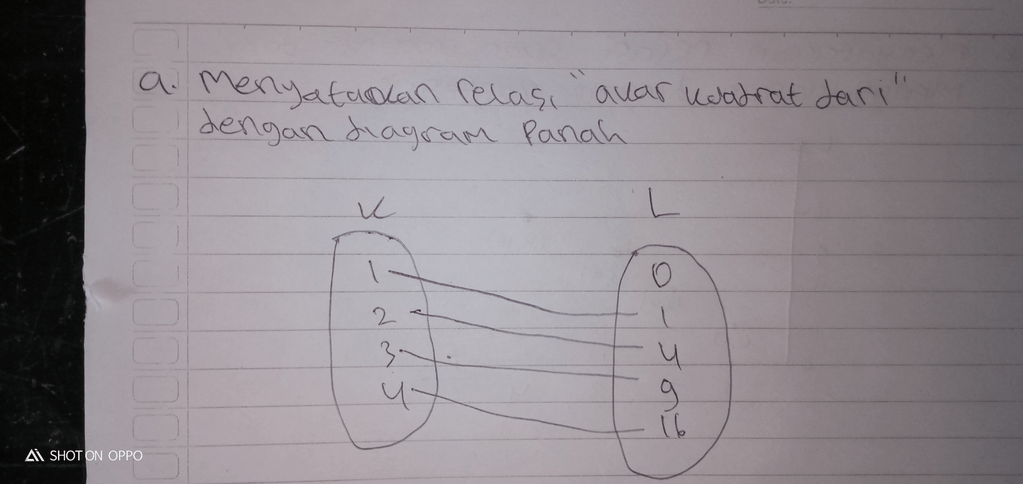 a. Menyatakan relasi "akar kuadrat dari"
dengan diagram Panah
K L
1 0
2 1
3 4
4 9
16
SHOT ON OPPO